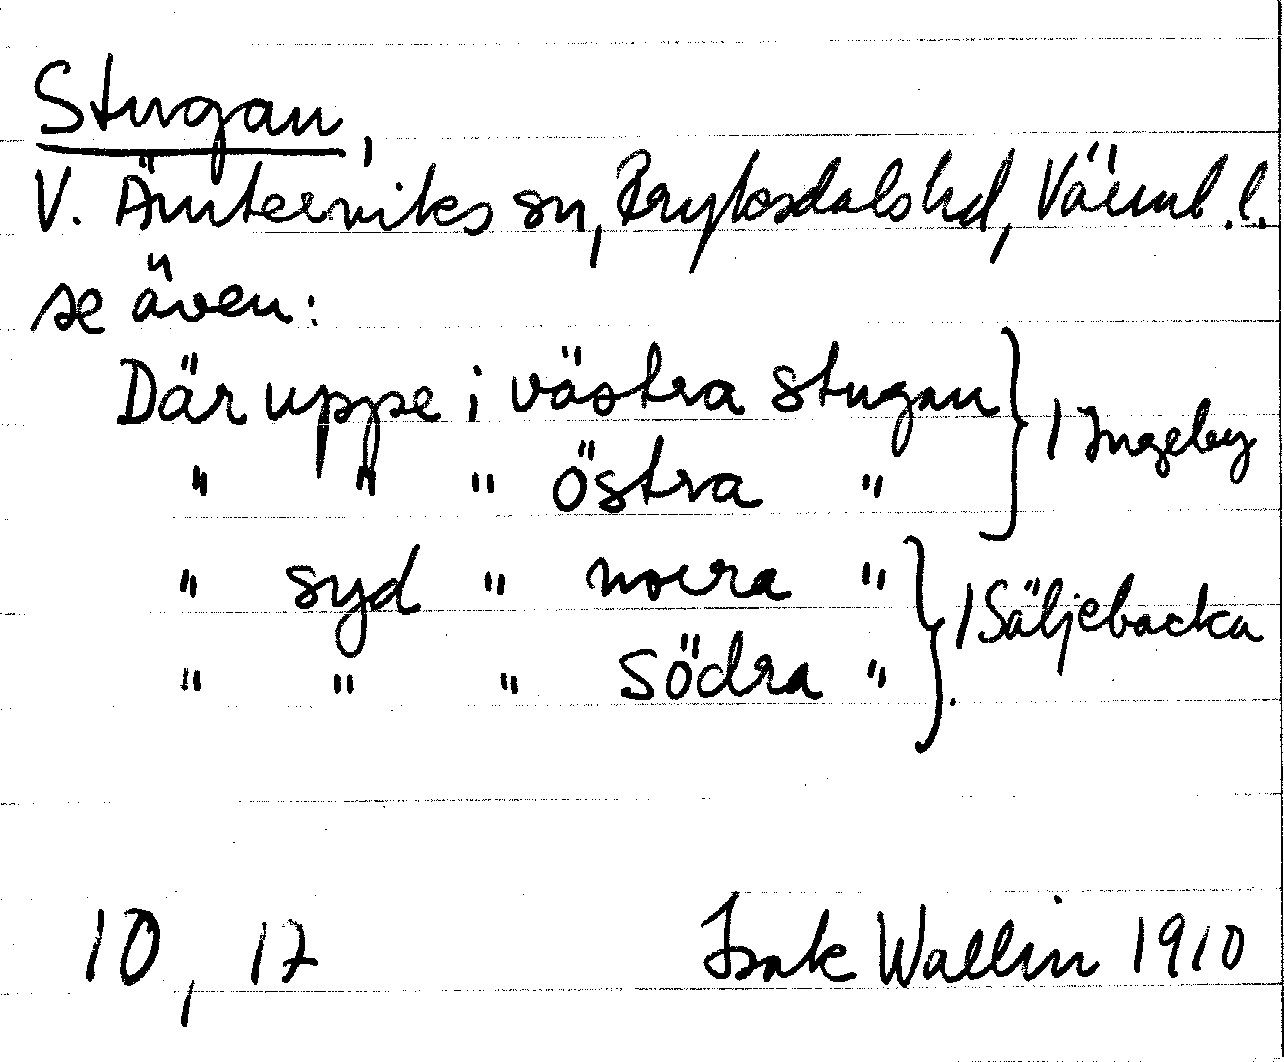 Stugan,
V. Ämterviks sn, Fryksdals hd, Värml. l.
se även:
Där uppe i västra stugan } / Ingeby
" " " östra "
" syd " norra " } / Säljebacka
" " " södra " .
10, 17 Isak Wallin 1910